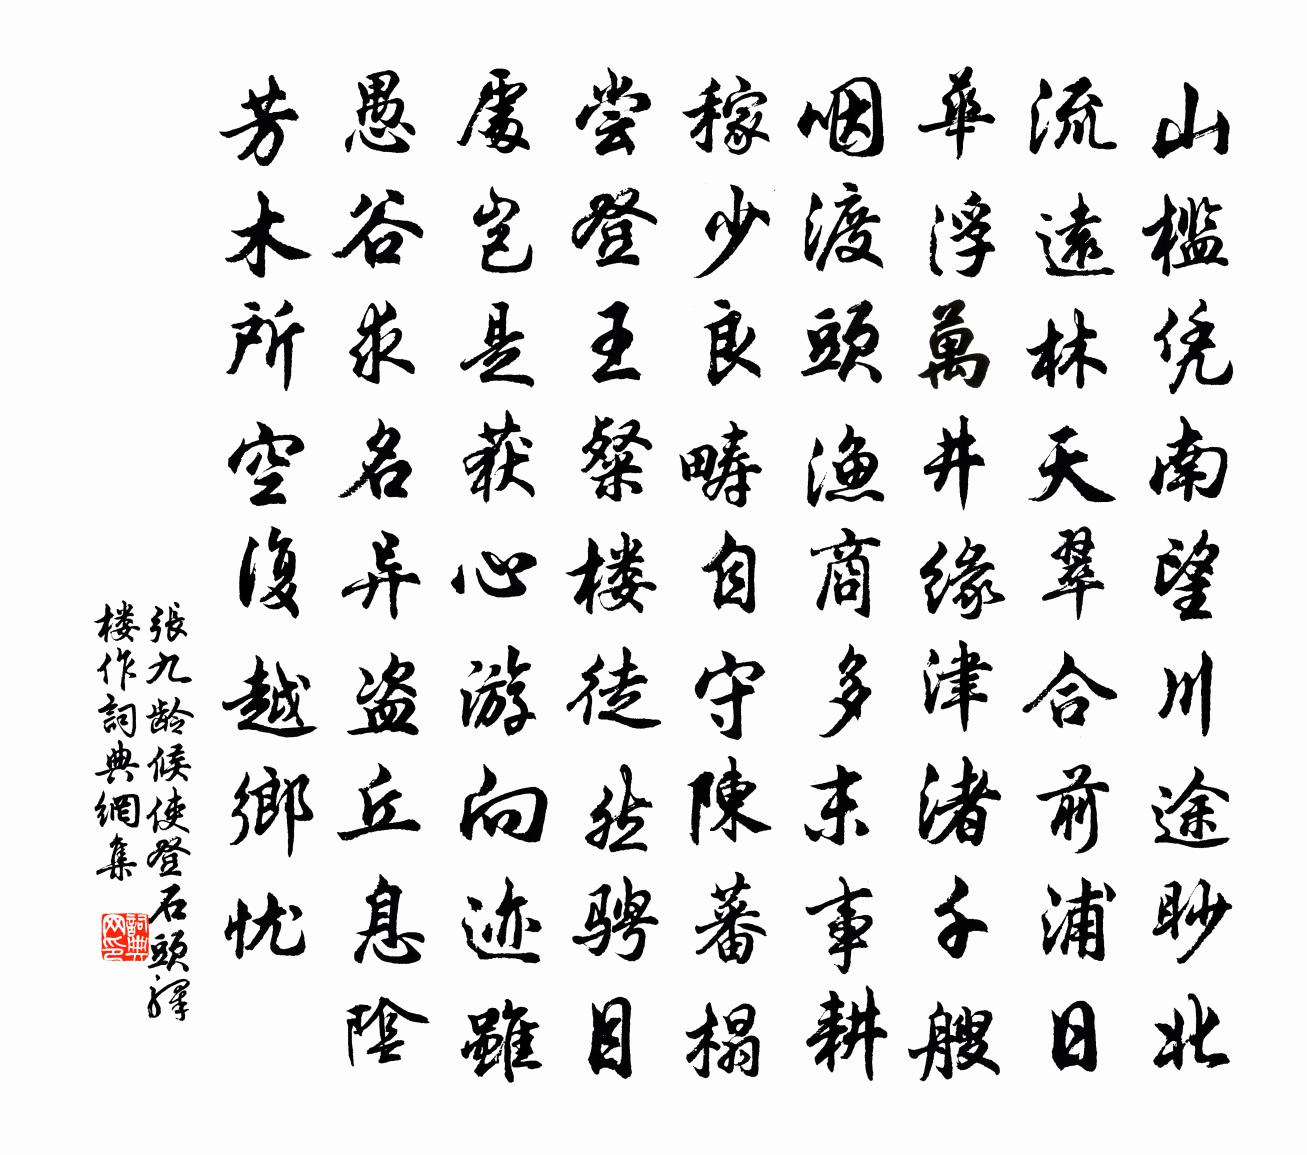 山槛凭南望川途眇北
流遠林天翠合前浦日
華浮萬井緣津渚千艘
咽渡頭漁商多末事耕
稼少良疇自守陳蕃榻
尝登王粲楼徒然骋目
處岂是获心游向迹雖
愚谷求名异盗丘息陰
芳木所空復越鄉忧
張九龄候使登石頭驛
楼作詞典網集
詞典网印